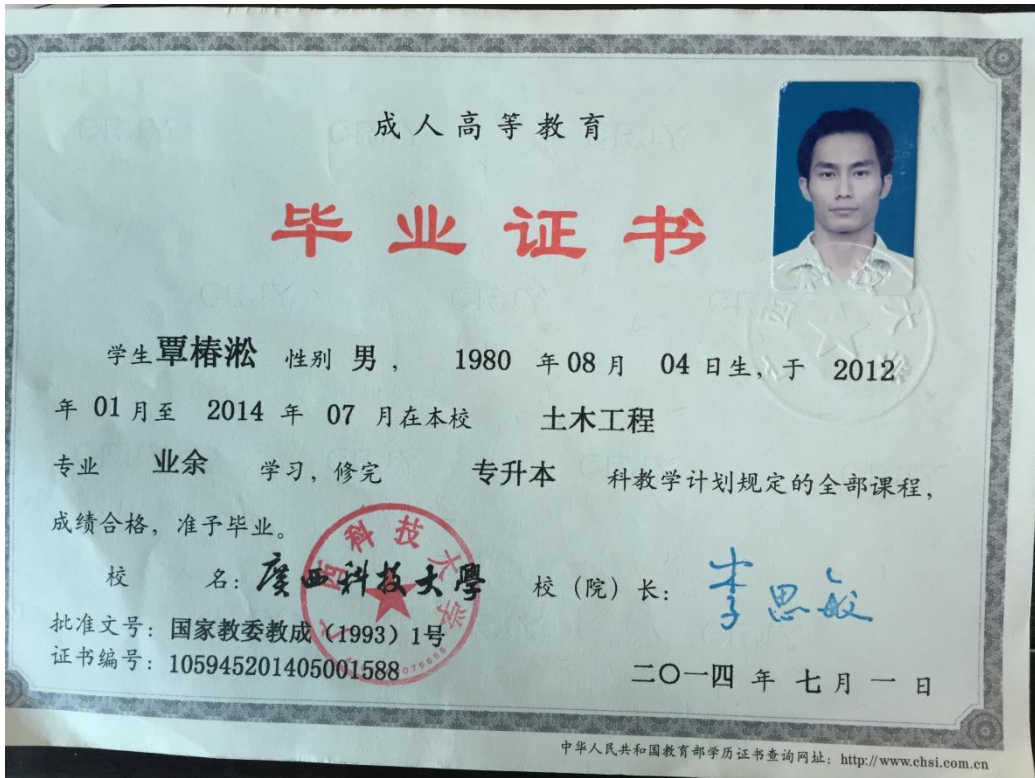 成人高等教育
毕业证书
学生覃椿淞 性别 男， 1980 年 08 月 04 日生，于 2012
年 01 月至 2014 年 07 月在本校 土木工程
专业 业余 学习，修完 专升本 科教学计划规定的全部课程，
成绩合格，准予毕业。
校 名：廣西科技大學 校（院）长：李思敏
批准文号：国家教委教成（1993）1号
证书编号：105945201405001588
二〇一四 年 七 月 一 日
中华人民共和国教育部学历证书查询网址：http://www.chsi.com.cn